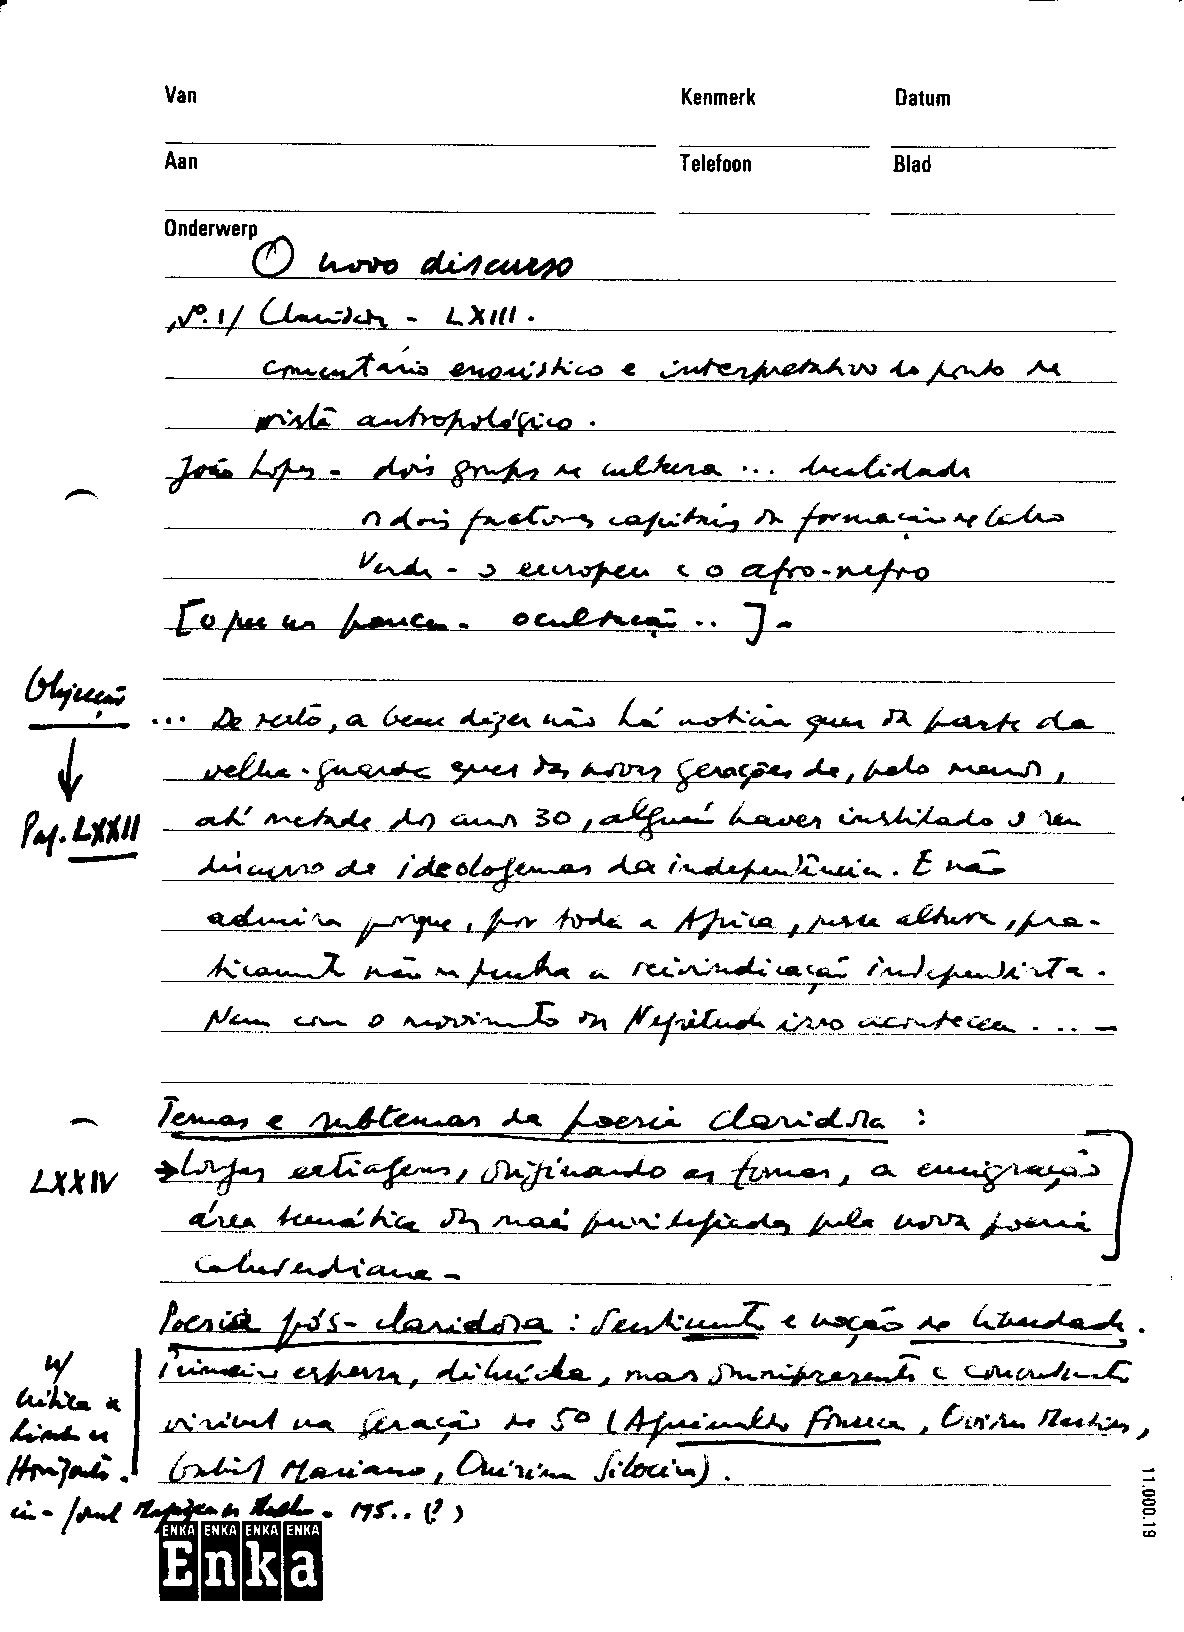 Van Kenmerk Datum
Aan Telefoon Blad
Onderwerp
O novo discurso
Nº. 1/ Claridade - LXIII.
comentário enquistico e interpretativo do ponto de
vista antropológico.
João Lopes - dois grupos de cultura ... dualidade
os dois factores capitais da formação de Cabo
Verde - o europeu e o afro-negro
[o per um pouco. ocultação ..] -
Objecção
... De resto, a bem dizer não há notícia quer da parte da
velha-guarda quer das novas gerações de, pelo menos,
Pag. LXXII
até metade dos anos 30, alguém haver instilado o seu
discurso de ideologemas da independência. E não
admira porque, por toda a África, nessa altura, pra-
ticamente não se punha a reivindicação independentista.
Nem com o movimento da Negritude isso aconteceu ... -
Temas e subtemas da poesia claridosa :
LXXIV
→ longas estiagens, originando as fomes, a emigração
área temática das mais privilegiadas pela nova poesia
caboverdiana -
Poesia pós-claridosa : Sentimento e noção de liberdade.
Primeiro esparsa, diluída, mas omnipresente e concretamente
visível na geração de 50 (Aguinaldo Fonseca, Ovídio Martins,
Gabriel Mariano, Onésima Silveira).
v/
crítica a
Linha de
Horizonte.
in - Jornal - 195.. (?)
ENKA ENKA ENKA ENKA
Enka
11.000.19